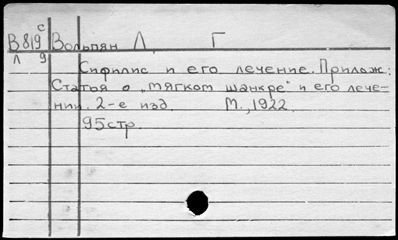 с
В 819 Вольпян Л. Г
Л 9
Сифилис и его лечение. Прилож:
Статья о „мягком шанкре" и его лече-
нии. 2-е изд. М., 1922.
95 стр.